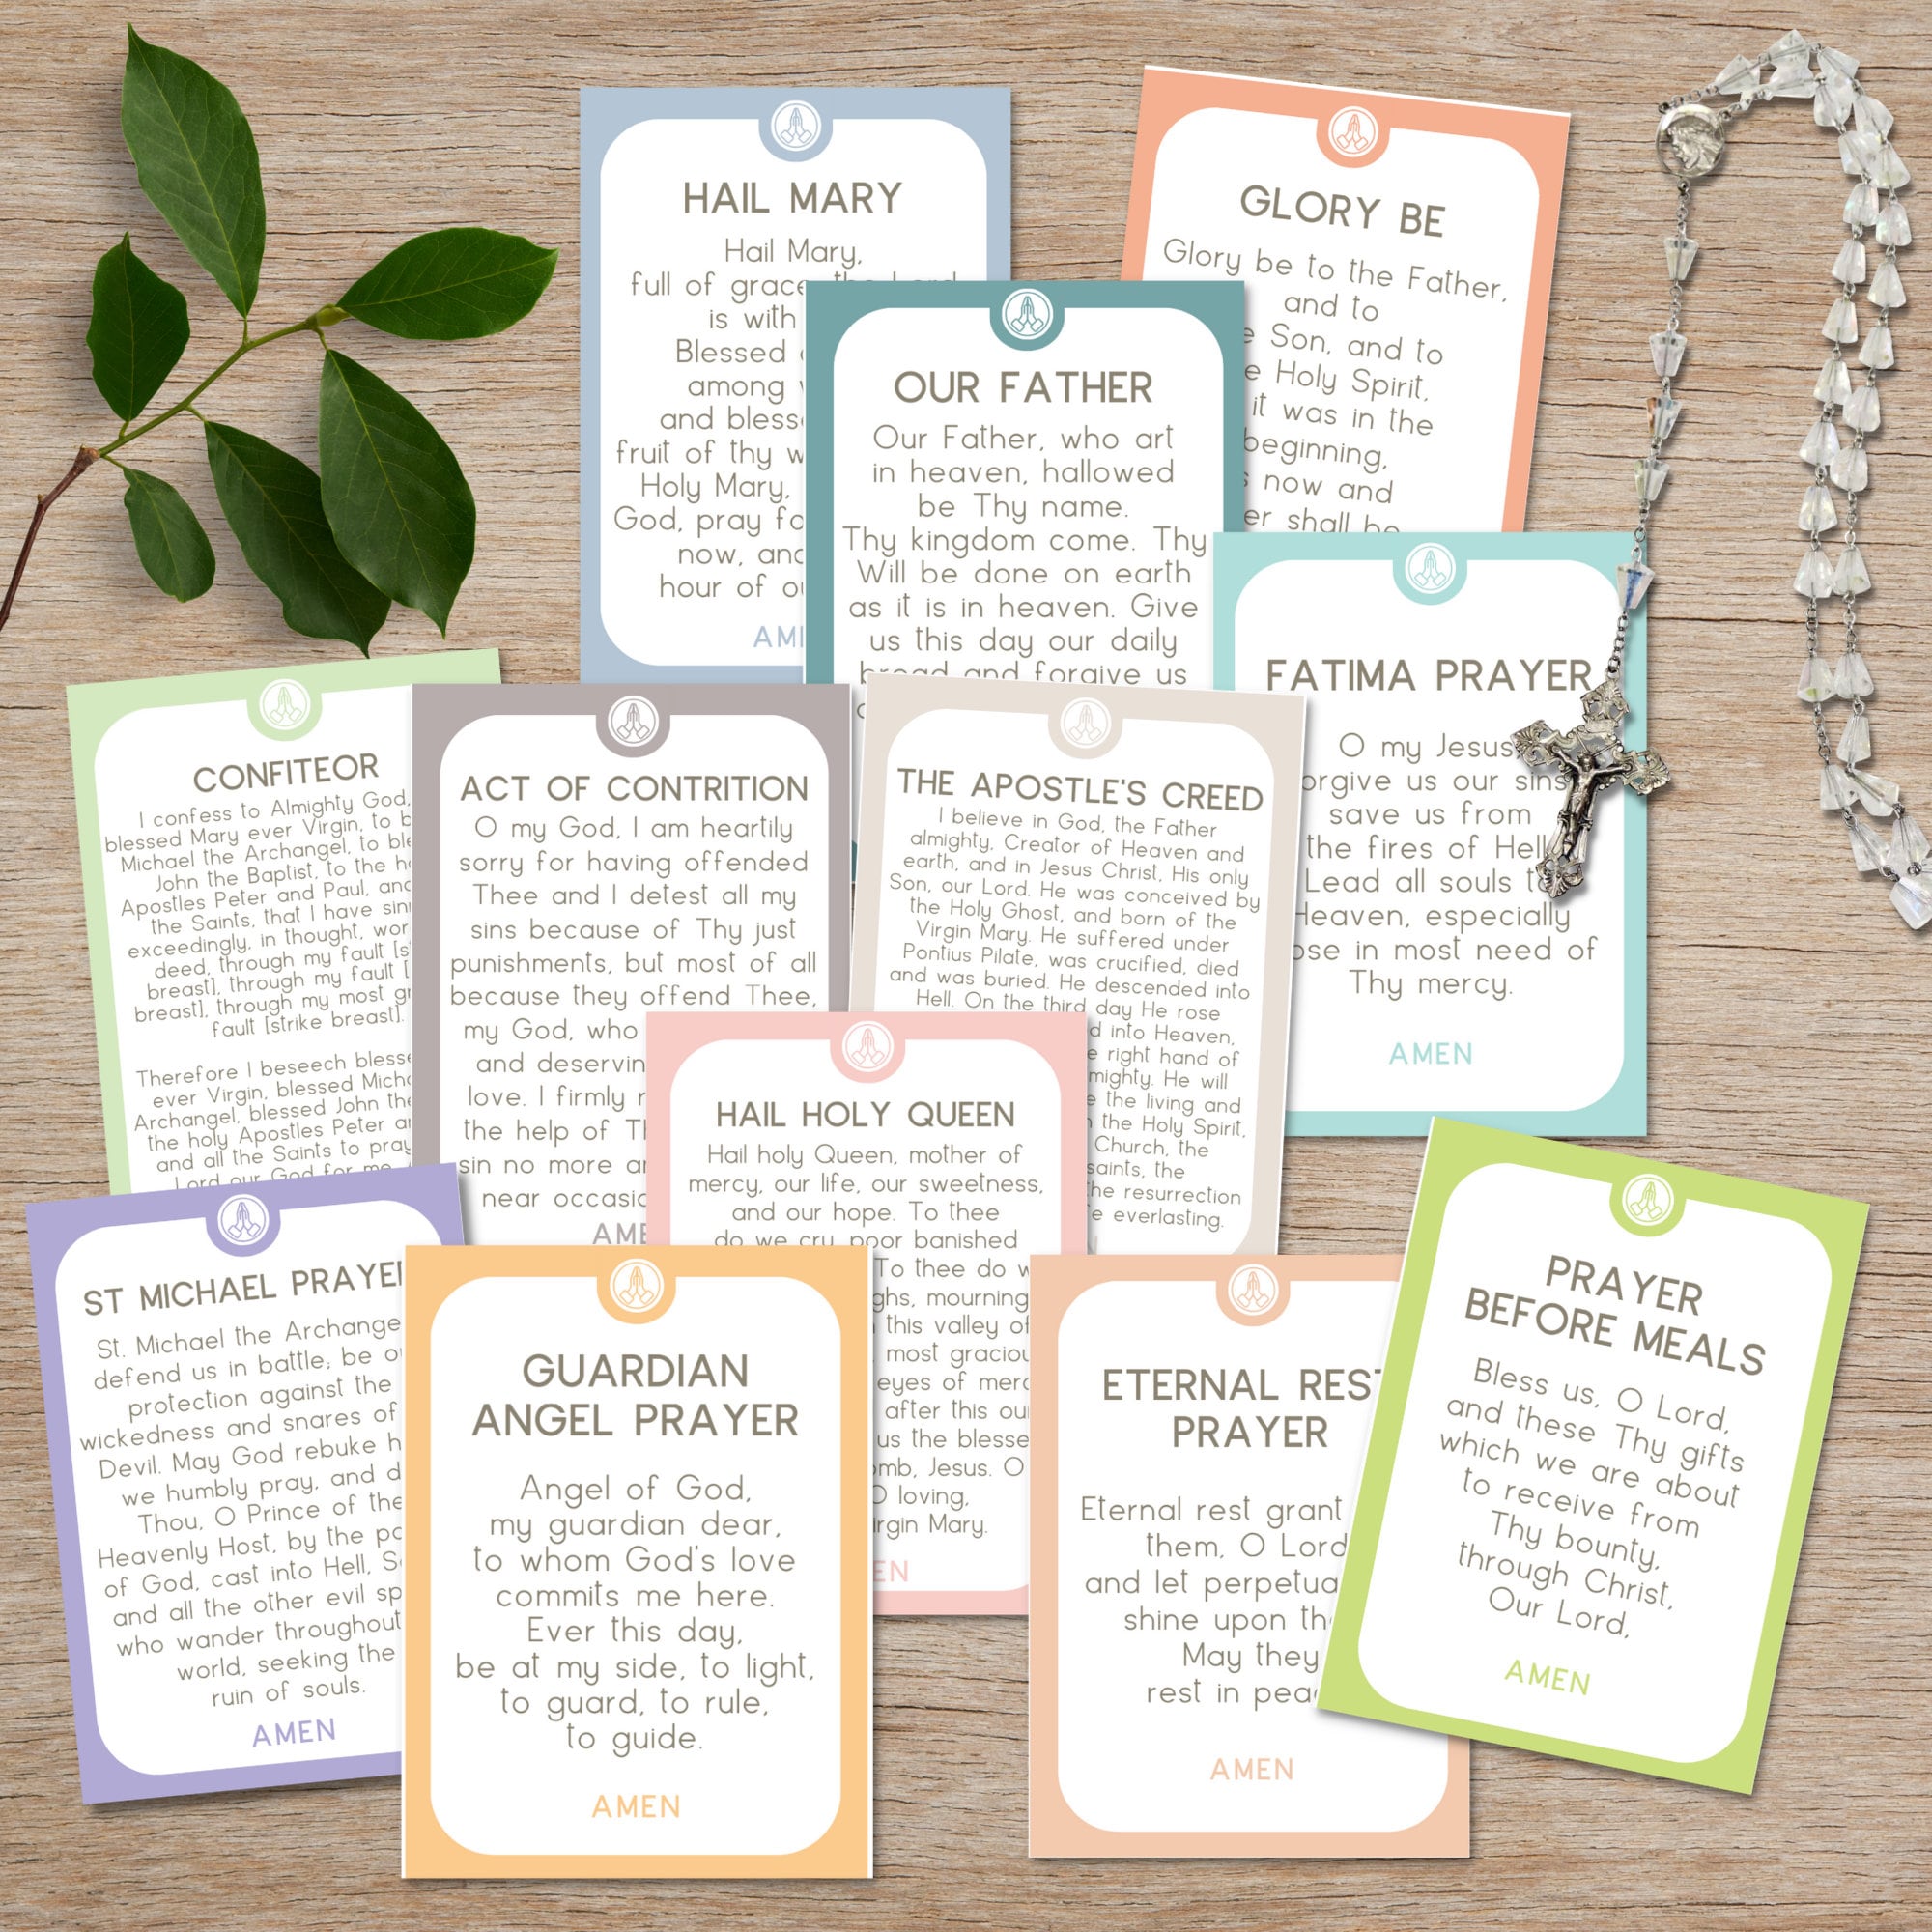 HAIL MARY
Hail Mary,
full of grace the Lord
is with
Blessed
among
and
fruit of thy
Holy Mary,
God, pray
now,
hour of
GLORY BE
Glory be to the Father,
and to
Son, and to
Holy Spirit,
it was in the
beginning,
now and
shall be
OUR FATHER
Our Father, who art
in heaven, hallowed
be Thy name.
Thy kingdom come. Thy
Will be done on earth
as it is in heaven. Give
us this day our daily
bread and forgive us
FATIMA PRAYER
O my Jesus
us our sins
save us from
the fires of Hell
Lead all souls to
Heaven, especially
in most need of
Thy mercy.
AMEN
CONFITEOR
I confess to Almighty God,
blessed Mary ever Virgin, to
Michael the Archangel, to
John the Baptist, to the
Apostles Peter and Paul,
the Saints, that I have
exceedingly, in thought,
deed, through my fault
breast], through my fault [
breast], through my most
fault [strike breast].
Therefore I beseech
ever Virgin, blessed
Archangel, blessed John
the holy Apostles Peter
and all the Saints to pray
Lord our God for me
ACT OF CONTRITION
O my God, I am heartily
sorry for having offended
Thee and I detest all my
sins because of Thy just
punishments, but most of all
because they offend Thee,
my God, who
and
love. I firmly
the help of
sin no more
near
THE APOSTLE'S CREED
I believe in God, the Father
almighty, Creator of Heaven and
earth, and in Jesus Christ, His only
Son, our Lord. He was conceived by
the Holy Ghost, and born of the
Virgin Mary. He suffered under
Pontius Pilate, was crucified, died
and was buried. He descended into
Hell. On the third day He rose
into Heaven,
right hand of
He will
the living and
the Holy Spirit,
Church, the
the
resurrection
everlasting.
HAIL HOLY QUEEN
Hail holy Queen, mother of
mercy, our life, our sweetness,
and our hope. To thee
do we cry poor banished
To thee do
mourning
this valley of
most
eyes of
after this
us the
Jesus. O
O loving,
Mary.
ST MICHAEL PRAYER
St. Michael the
defend us in battle; be
protection against the
wickedness and snares of
Devil. May God rebuke
we humbly pray, and
Thou, O Prince of the
Heavenly Host, by the
of God, cast into Hell,
and all the other evil
who wander throughout
world, seeking the
ruin of souls.
AMEN
GUARDIAN
ANGEL PRAYER
Angel of God,
my guardian dear,
to whom God's love
commits me here.
Ever this day,
be at my side, to light,
to guard, to rule,
to guide.
AMEN
ETERNAL REST
PRAYER
Eternal rest grant
them, O Lord
and let
shine upon
May they
rest in
AMEN
PRAYER
BEFORE MEALS
Bless us, O Lord,
and these Thy gifts
which we are about
to receive from
Thy bounty,
through Christ,
Our Lord,
AMEN